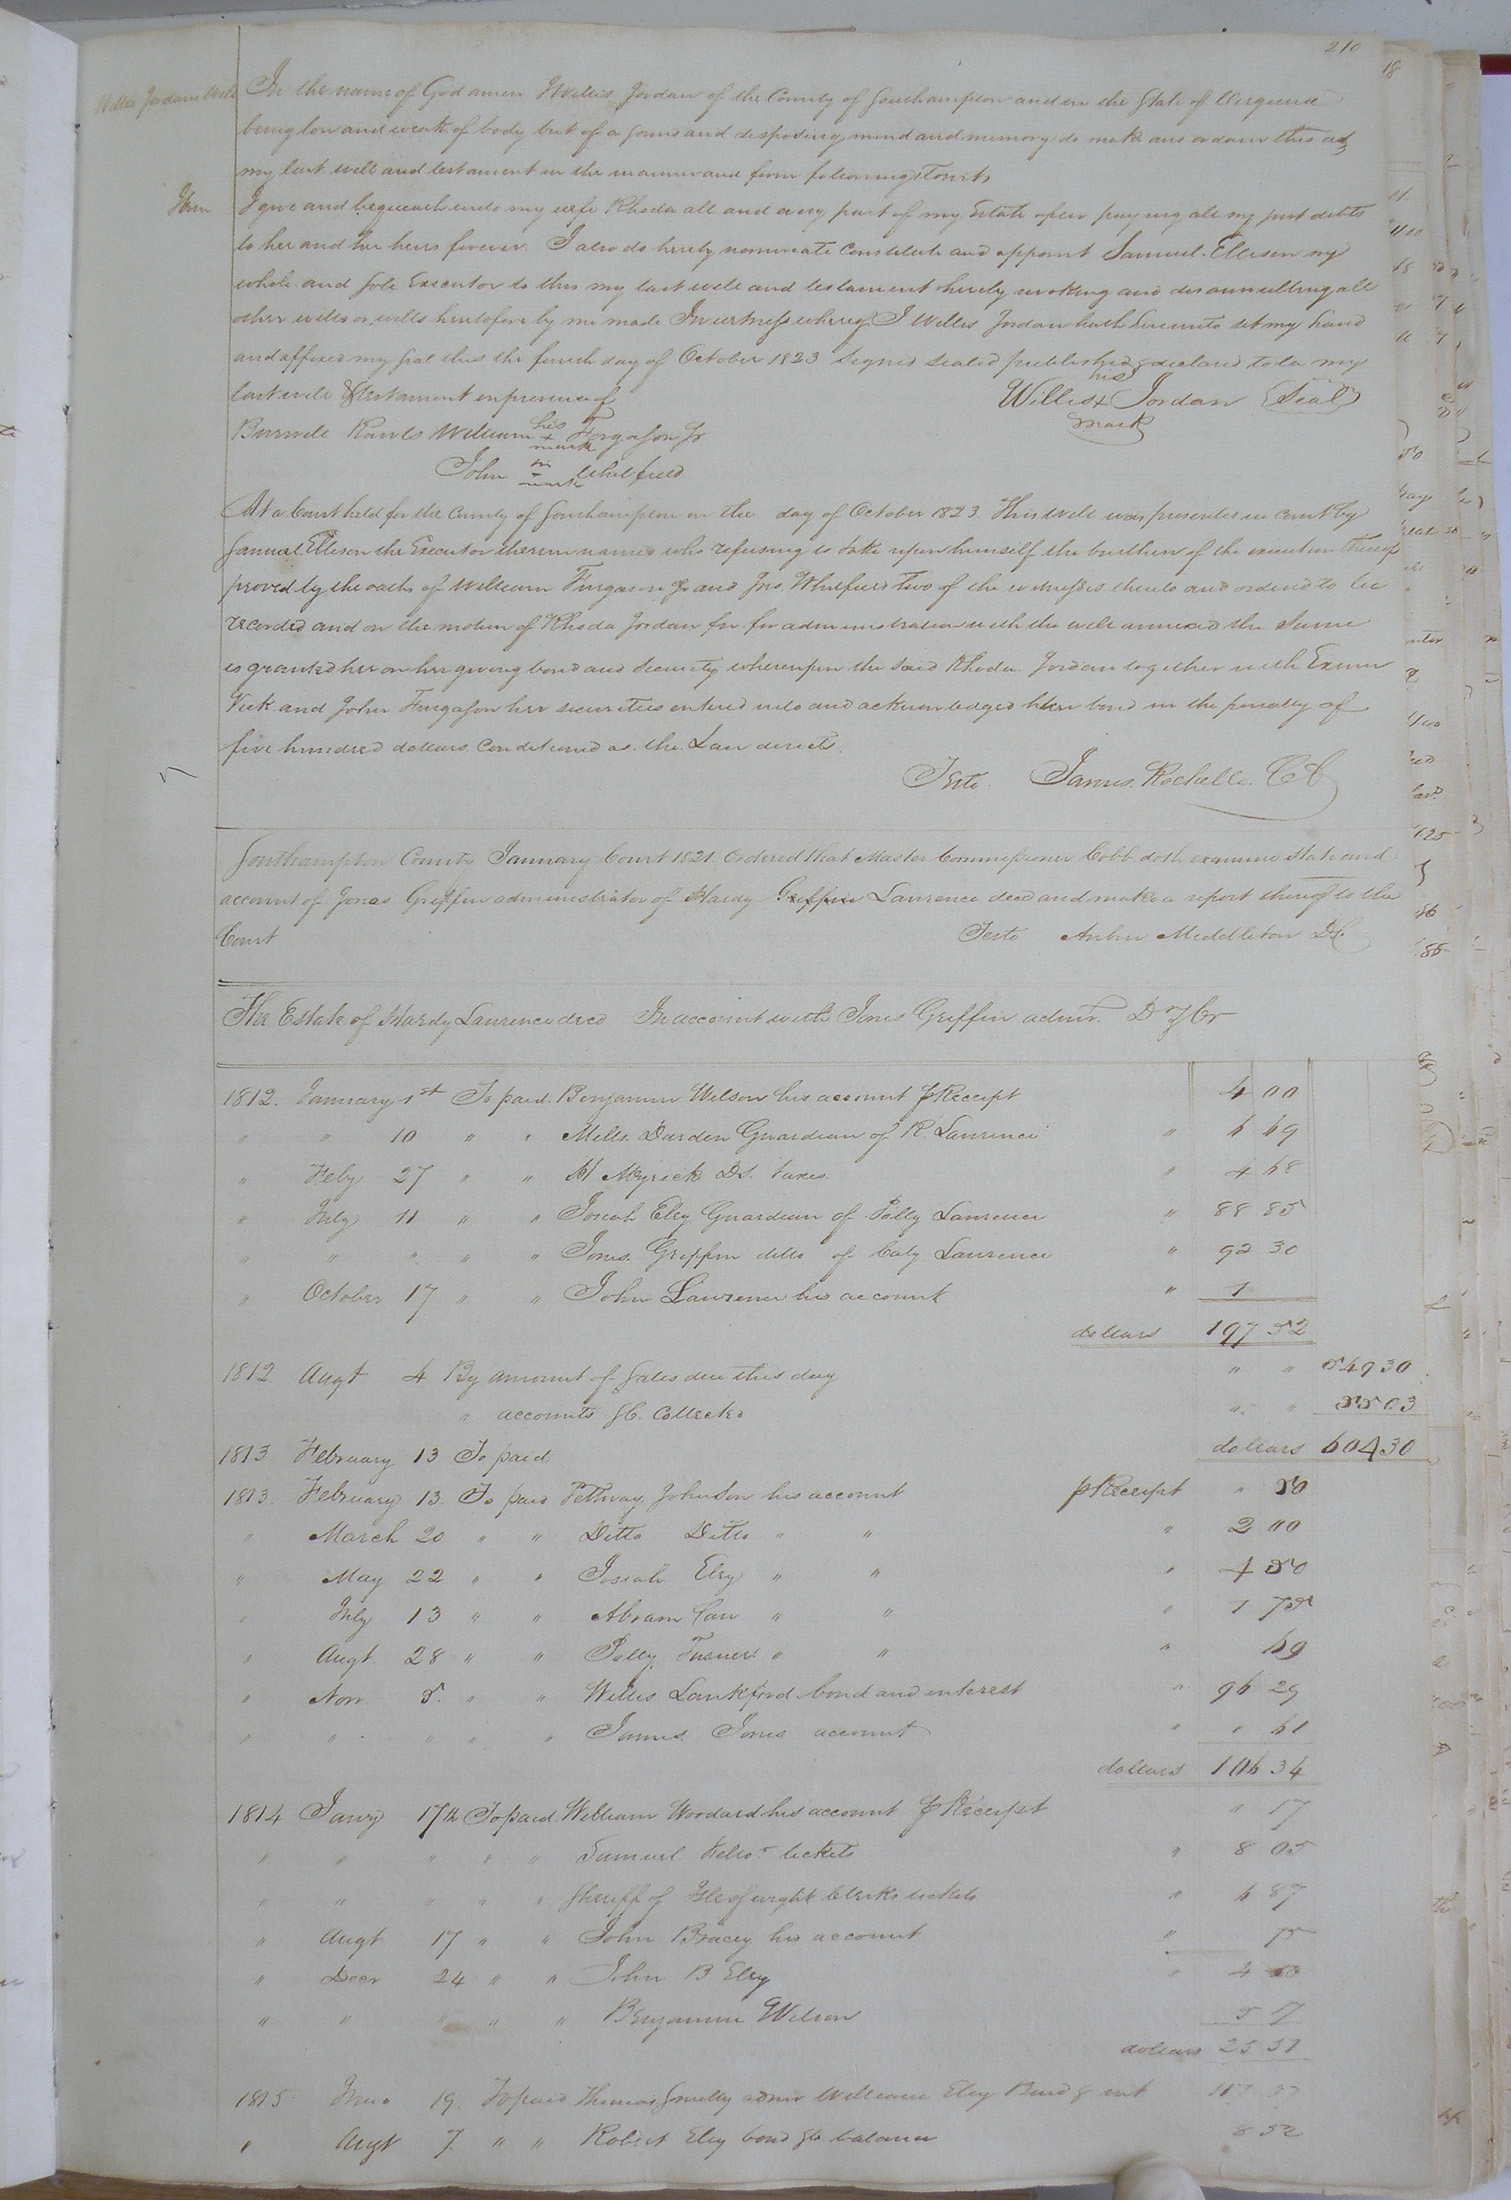 210
Willis Jordans Will
In the name of God amen I Willis Jordan of the County of Southampton and in the State of Virginia
being low and weak of body but of a sound and disposing mind and memory do make and ordain this as
my last will and testament in the manner and form following Towit,
Item I give and bequeath unto my wife Rhoda all and every part of my Estate after paying all my just debts
to her and her heirs forever. I also do hereby nominate constitute and appoint Samuel Ellison my
whole and sole Executor to this my last will and testament hereby revoking and disannulling all
other wills or wills heretofore by me made In witness whereof I Willis Jordan hath hereunto set my hand
and affixed my seal this the fourth day of October 1823 Signed Sealed published & declared to be my
last will & testament in presence of
his
Willis x Jordan (Seal)
mark
Burwell Rawls William his x mark Forgason Jr
John his x mark Whitfield
At a Court held for the County of Southampton on the day of October 1823 This will was presented in court by
Samuel Ellison the Executor therein named who refusing to take upon himself the burthen of the execution thereof
proved by the oaths of William Furgason Jr and Jno. Whitfield two of the witnesses thereto and ordered to be
recorded and on the motion of Rhoda Jordan for for administration with the will annexed the Same
is granted her on her giving bond and Security whereupon the said Rhoda Jordan together with Exum
Vick and John Furgason her securities entered into and acknowledged their bond in the penalty of
five hundred dollars Conditioned as the Law directs.
Teste. James Rochelle. C C
Southampton County January Court 1821 Ordered that Master Commissioner Cobb doth examine state and
account of Jonas Griffin administrator of Hardy Griffin Laurence decd and make a report thereof to the
Court Teste Arthur Middleton DC.
The Estate of Hardy Laurence decd In account with Jones Griffin admr. Dr & Cr
1812. January 1st To paid Benjamin Wilson his account ⅌ Receipt 4 00
" " 10 " " Mills Darden Guardian of R Laurence " 6 69
" Feby 27 " " M Myrick DS. taxes. " 4 68
" July 11 " " Josiah Eley Guardian of Polly Laurence " 88 85
" " " " " Jones Griffin ditto of Caty Laurence " 92 30
" October 17 " " John Laurence his account " 1
dollars 197 52
1812 Augt 4 By amount of Sales due this day " " 549 30
" accounts &C. Collected " " 55 03
1813 February 13 To paid dollars 604 30
1813. February 13. To paid Pettway Johnson his account ⅌ Receipt " 50
" March 20 " " Ditto Ditto " " " 2 00
" May 22 " " Josiah Eley " " " 4 50
" July 13 " " Abram Carr " " " 1 75
" Augt. 28 " " Polly Turner " " " 69
" Nov 5. " " Willis Lankford bond and interest " 96 29
" " " " " James Jones account " " 61
dollars 106 34
1814 Jany 17th To paid William Woodard his account ⅌ Receipt " 17
" " " " " Samuel tickets " 8 05
" " " " " Sheriff of Isle of wight Clerks tickets " 6 87
" Augt 17 " " John Bracey his account " 75
" Decr 24 " " John B Eley "
" " " " " Benjamin Wilson 5 17
dollars 25 51
1815 June 19. To paid Thomas Smelly admr William Eley Bond & int
" Augt 7. " " Robert Eley bond for balance 8 52